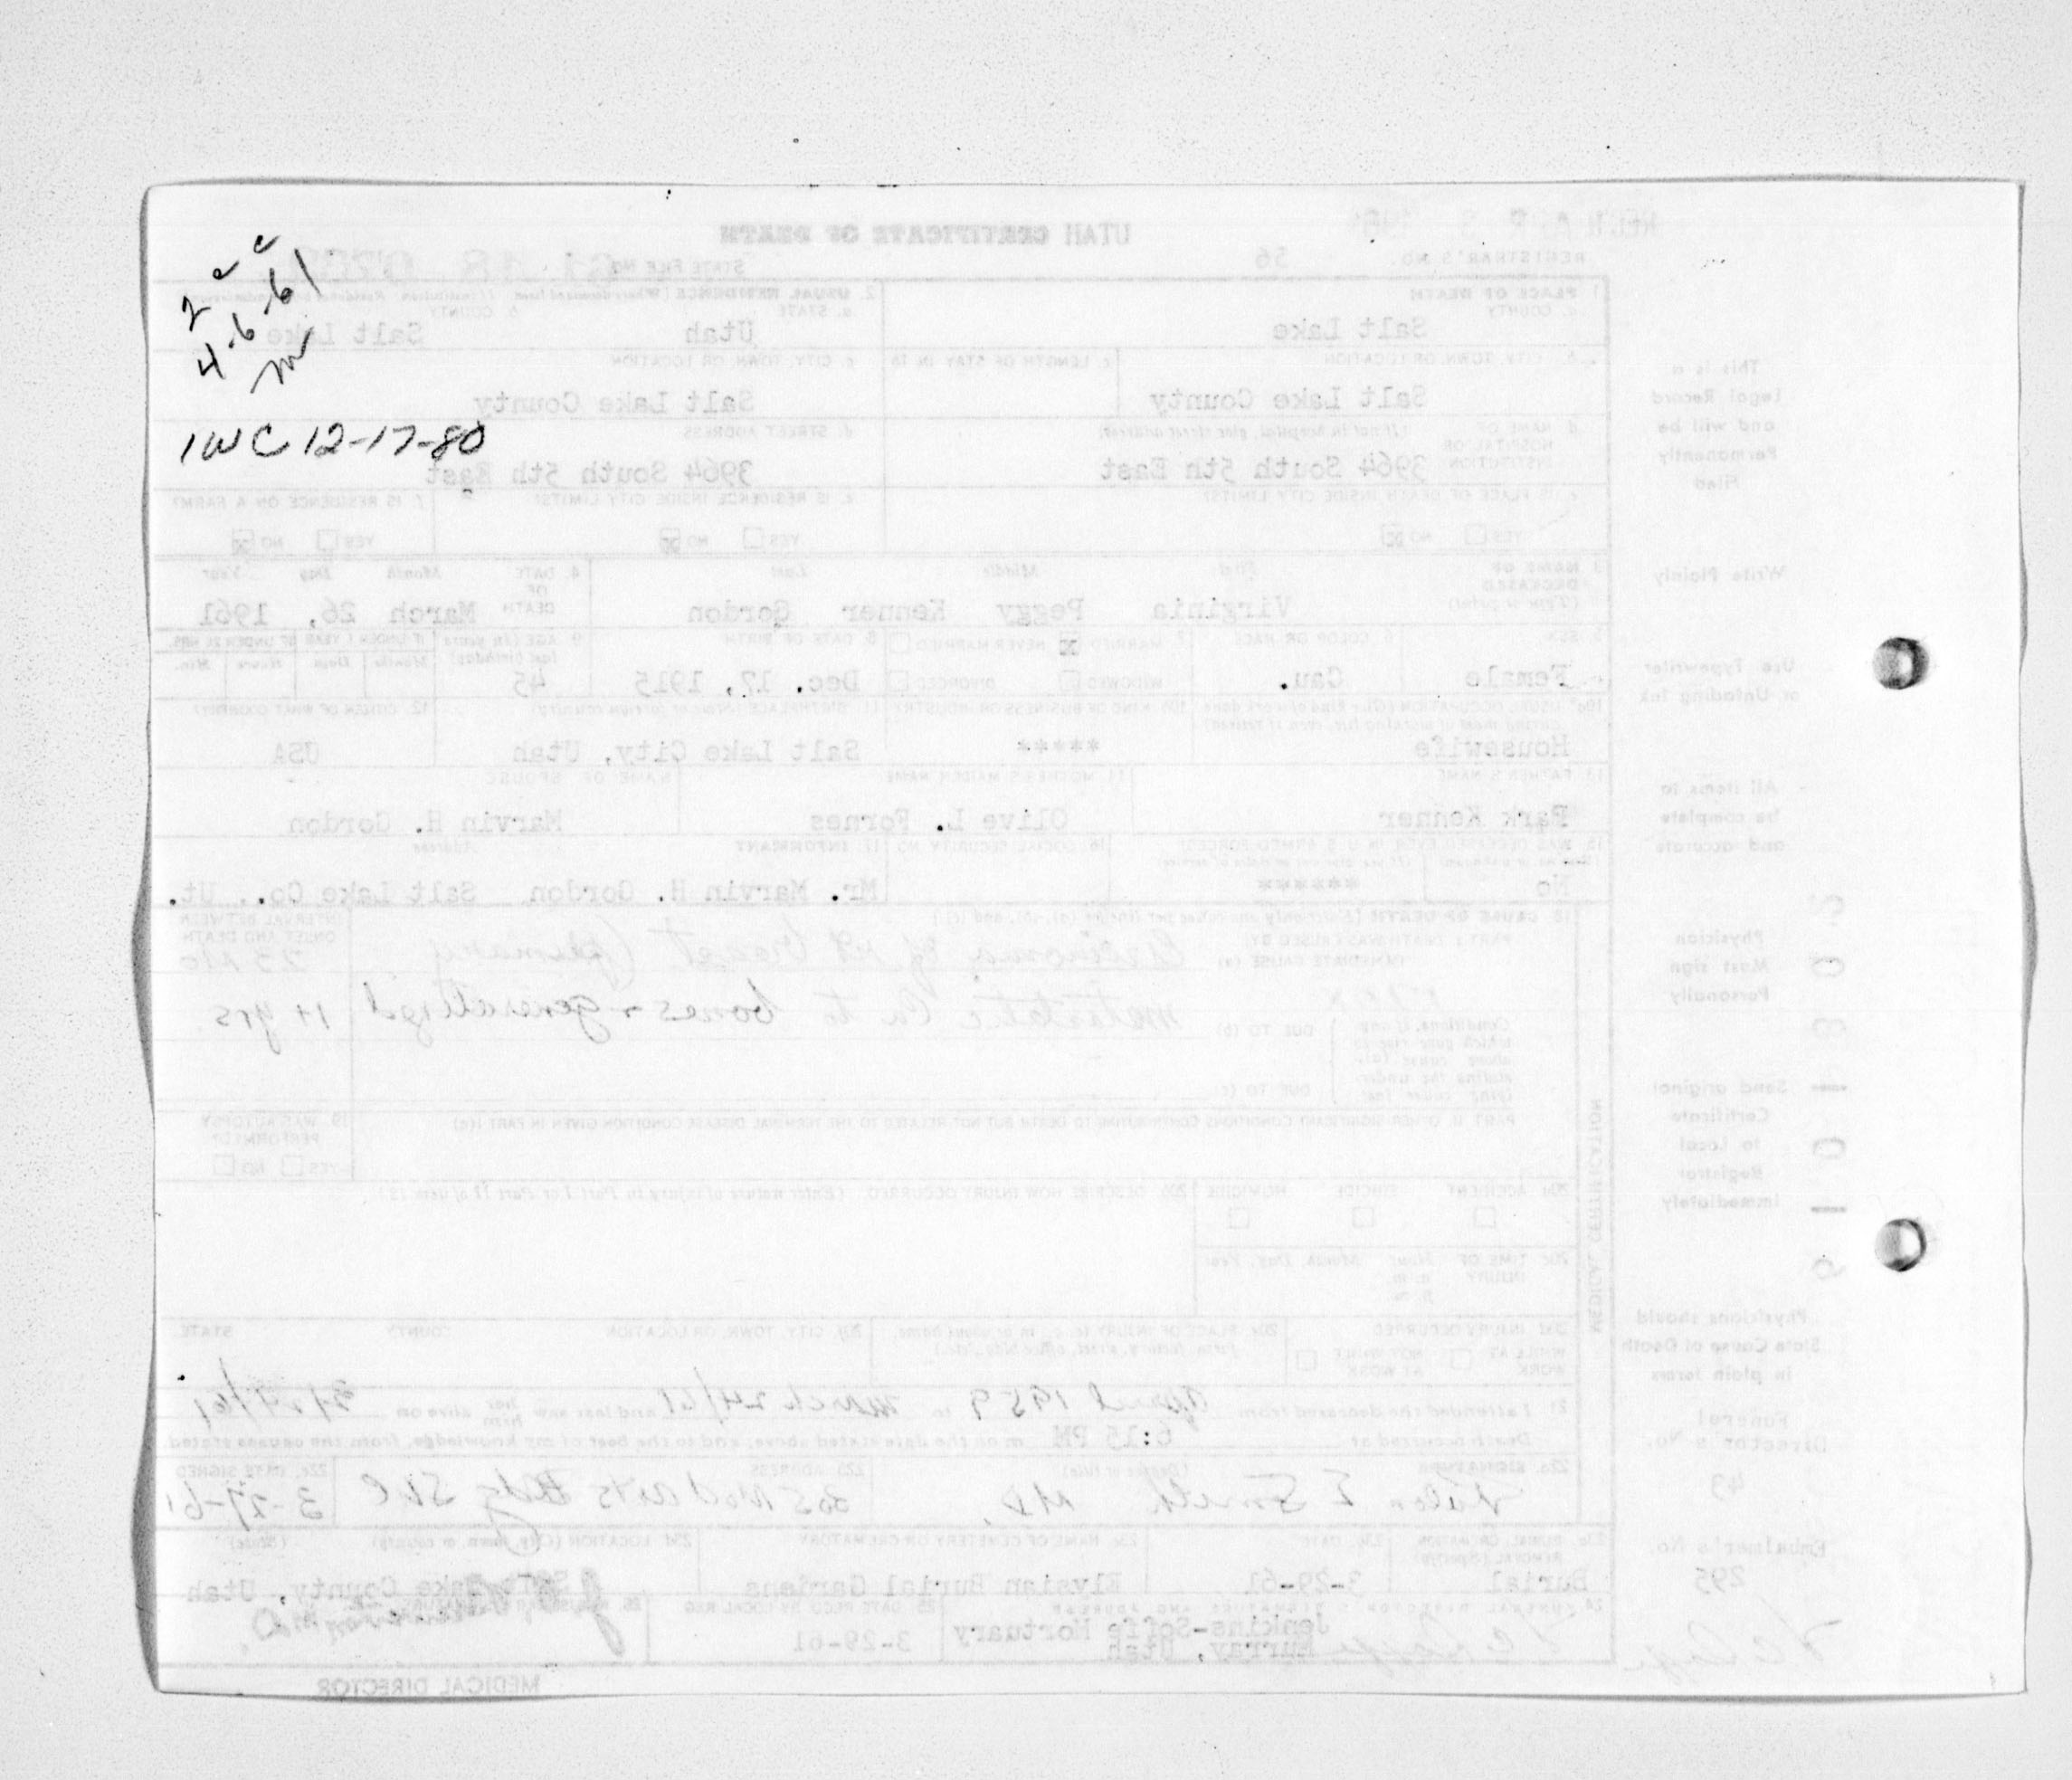 2 c c
4-6-61
m
1WC 12-17-80
UTAH CERTIFICATE OF DEATH
REGISTRAR'S NO. 56
STATE FILE NO. 61 18
1 PLACE OF DEATH
a. COUNTY
Salt Lake
2. USUAL RESIDENCE (Where deceased lived. If institution: Residence before admission)
a. STATE
Utah
b. COUNTY
Salt Lake
b. CITY, TOWN, OR LOCATION
Salt Lake County
c. LENGTH OF STAY IN 1b
c. CITY, TOWN, OR LOCATION
Salt Lake County
d. NAME OF HOSPITAL OR INSTITUTION (If not in hospital, give street address)
3964 South 5th East
d. STREET ADDRESS
3964 South 5th East
e. IS PLACE OF DEATH INSIDE CITY LIMITS?
YES NO
e. IS RESIDENCE INSIDE CITY LIMITS?
YES NO
f. IS RESIDENCE ON A FARM?
YES NO
3. NAME OF DECEASED
(Type or print)
First Middle Last
Virginia Peggy Kenner Gordon
4. DATE OF DEATH
Month Day Year
March 26, 1961
5. SEX
Female
6. COLOR OR RACE
Cau.
7. MARRIED NEVER MARRIED
WIDOWED DIVORCED
8. DATE OF BIRTH
Dec. 17, 1915
9. AGE (In years last birthday)
45
IF UNDER 1 YEAR
Months Days
IF UNDER 24 HRS.
Hours Min.
10a. USUAL OCCUPATION (Give kind of work done during most of working life, even if retired)
Housewife
10b. KIND OF BUSINESS OR INDUSTRY
*****
11. BIRTHPLACE (State or foreign country)
Salt Lake City, Utah
12. CITIZEN OF WHAT COUNTRY?
USA
13. FATHER'S NAME
Park Kenner
14. MOTHER'S MAIDEN NAME
Olive L. Fornes
NAME OF SPOUSE
Marvin H. Gordon
15. WAS DECEASED EVER IN U.S. ARMED FORCES?
(Yes, no, or unknown) (If yes, give war or dates of service)
No ******
16. SOCIAL SECURITY NO.
17. INFORMANT Address
Mr. Marvin H. Gordon Salt Lake Co., Ut.
18. CAUSE OF DEATH (Enter only one cause per line for (a), (b), and (c))
PART I. DEATH WAS CAUSED BY:
IMMEDIATE CAUSE (a)
Carcinoma of rt breast (primary
INTERVAL BETWEEN ONSET AND DEATH
23 Mo
Conditions, if any, which gave rise to above cause (a), stating the underlying cause last
DUE TO (b)
metastatic Ca to bones + generalized
1+ yrs
DUE TO (c)
PART II. OTHER SIGNIFICANT CONDITIONS CONTRIBUTING TO DEATH BUT NOT RELATED TO THE TERMINAL DISEASE CONDITION GIVEN IN PART I(a)
19. WAS AUTOPSY PERFORMED?
YES NO
20a. ACCIDENT SUICIDE HOMICIDE
20b. DESCRIBE HOW INJURY OCCURRED. (Enter nature of injury in Part I or Part II of item 18.)
20c. TIME OF INJURY Hour Month, Day, Year
a.m.
p.m.
20d. INJURY OCCURRED
WHILE AT WORK NOT WHILE AT WORK
20e. PLACE OF INJURY (e.g., in or about home, farm, factory, street, office bldg., etc.)
20f. CITY, TOWN, OR LOCATION COUNTY STATE
21. I attended the deceased from April 1959 to March 24/61 and last saw her him alive on 3/24/61
Death occurred at 6:15 PM m on the date stated above; and to the best of my knowledge, from the causes stated.
22a. SIGNATURE (Degree or title)
E Smith MD.
22b. ADDRESS
Med arts Bldg SLC
22c. DATE SIGNED
3-27-61
23a. BURIAL, CREMATION, REMOVAL (Specify)
Burial
23b. DATE
3-29-61
23c. NAME OF CEMETERY OR CREMATORY
Elysian Burial Gardens
23d. LOCATION (City, town, or county) (State)
Salt Lake County, Utah
24. FUNERAL DIRECTOR'S SIGNATURE AND ADDRESS
Jenkins-Soffe Mortuary
Murray, Utah
25. DATE RECD. BY LOCAL REG.
3-29-61
26. REGISTRAR'S SIGNATURE
MEDICAL DIRECTOR
MEDICAL CERTIFICATION
This is a
Legal Record
and will be
Permanently
Filed
Write Plainly
Use Typewriter
or Unfading Ink
All items to
be complete
and accurate
Physician
Must sign
Personally
Send original
Certificate
to Local
Registrar
Immediately
Physicians should
State Cause of Death
in plain terms
Funeral
Director's No.
43
Embalmer's No.
295